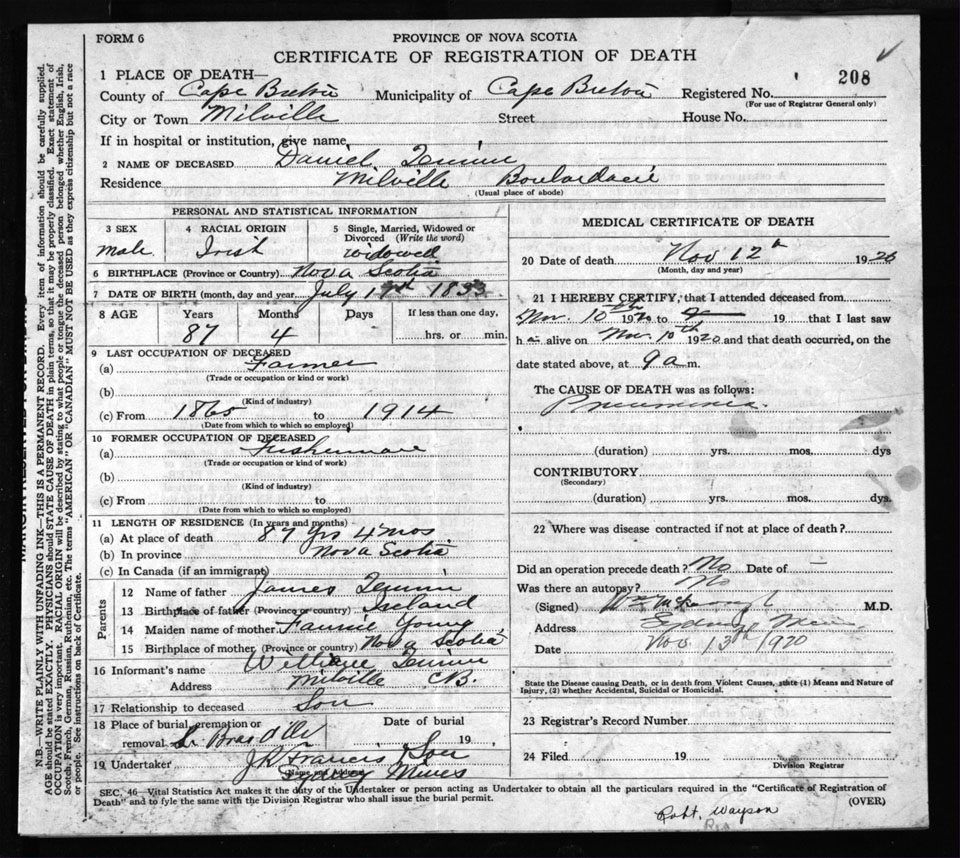 FORM 6
PROVINCE OF NOVA SCOTIA
CERTIFICATE OF REGISTRATION OF DEATH
208
1 PLACE OF DEATH—
County of Cape Breton Municipality of Cape Breton Registered No.
(For use of Registrar General only)
City or Town Milville Street House No.
If in hospital or institution, give name,
2 NAME OF DECEASED Daniel
Residence Milville Boulardarie
(Usual place of abode)
PERSONAL AND STATISTICAL INFORMATION
3 SEX 4 RACIAL ORIGIN 5 Single, Married, Widowed or Divorced (Write the word)
male Irish widowed
6 BIRTHPLACE (Province or Country) Nova Scotia
7 DATE OF BIRTH (month, day and year) July 1833
8 AGE Years Months Days If less than one day,
87 4 hrs. or min.
9 LAST OCCUPATION OF DECEASED
(a) Farmer
(Trade or occupation or kind or work)
(b)
(Kind of industry)
(c) From 1865 to 1914
(Date from which to which so employed)
10 FORMER OCCUPATION OF DECEASED
(a) Fisherman
(Trade or occupation or kind of work)
(b)
(Kind of industry)
(c) From to
(Date from which to which so employed)
11 LENGTH OF RESIDENCE (In years and months)
(a) At place of death 87 yrs 4 mos.
(b) In province Nova Scotia
(c) In Canada (if an immigrant)
Parents
12 Name of father James
13 Birthplace of father (Province or country) Ireland
14 Maiden name of mother Fannie Young
15 Birthplace of mother (Province or country) Nova Scotia
16 Informant's name William
Address Milville C.B.
17 Relationship to deceased Son
18 Place of burial, cremation or removal Date of burial
19
19 Undertaker J A Francis Son
(Name and Address)
Sydney Mines
MEDICAL CERTIFICATE OF DEATH
20 Date of death Nov 12th 1920
(Month, day and year)
21 I HEREBY CERTIFY, that I attended deceased from
Nov. 10th 1920 to 19 that I last saw
h alive on Nov. 10th 1920 and that death occurred, on the
date stated above, at 9 a m.
The CAUSE OF DEATH was as follows:
Pneumonia
(duration) yrs. mos. dys
CONTRIBUTORY
(Secondary)
(duration) yrs. mos. dys.
22 Where was disease contracted if not at place of death?
Did an operation precede death? No Date of —
Was there an autopsy? No
(Signed) M.D.
Address Sydney Mines
Date Nov. 13th 1920
State the Disease causing Death, or in death from Violent Causes, state (1) Means and Nature of
Injury, (2) whether Accidental, Suicidal or Homicidal.
23 Registrar's Record Number
24 Filed 19
Division Registrar
SEC. 46—Vital Statistics Act makes it the duty of the Undertaker or person acting as Undertaker to obtain all the particulars required in the "Certificate of Registration of
Death" and to fyle the same with the Division Registrar who shall issue the burial permit. (OVER)
Robt. Wayson
N.B.—WRITE PLAINLY WITH UNFADING INK—THIS IS A PERMANENT RECORD. Every item of information should be carefully supplied.
AGE should be stated EXACTLY. PHYSICIANS should STATE CAUSE OF DEATH in plain terms, so that it may be properly classified. Exact statement of
OCCUPATION is very important. RACIAL ORIGIN will be described by stating to what people or tongue the deceased person belonged whether English, Irish,
Scotch, French, German, Russian, Ruthenian, etc. The terms "AMERICAN" OR "CANADIAN" MUST NOT BE USED as they express citizenship but not a race
or people. See instructions on back of Certificate.